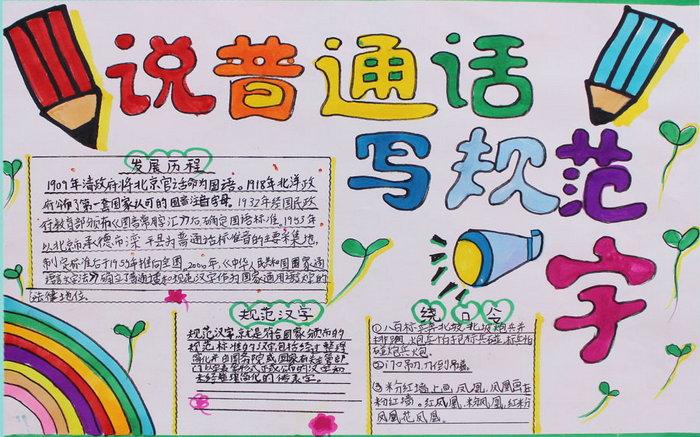 说普通话
写规范字
发展历程
1909年清政府将北京官话命为国语。1918年北洋政
府公布了第一套国家认可的国音注音字母，1932年经国民政
府教育部颁布《国音常用字汇》后确定国语标准，1953年
以北京市承德市滦平县为普通话标准音的主要采集地，
制定标准后于1955年推向全国，2000年，《中华人民共和国国家通
语言文字法》确立普通话和规范汉字作为国家通用语文的
法律地位。
规范汉字
规范汉字就是符合国家颁布的
规范标准的汉字，包括经过整理
简化并由国务院或国家有关主管部
门以字表形式正式公布的汉字和
未经整理简化的传承字。
绕口令
①八百标兵奔北坡，北坡炮兵并
排跑
碰炮兵炮。
②
③粉红墙上画凤凰，凤凰画在
粉红墙。红凤凰、粉凤凰，红粉
凤凰花凤凰。